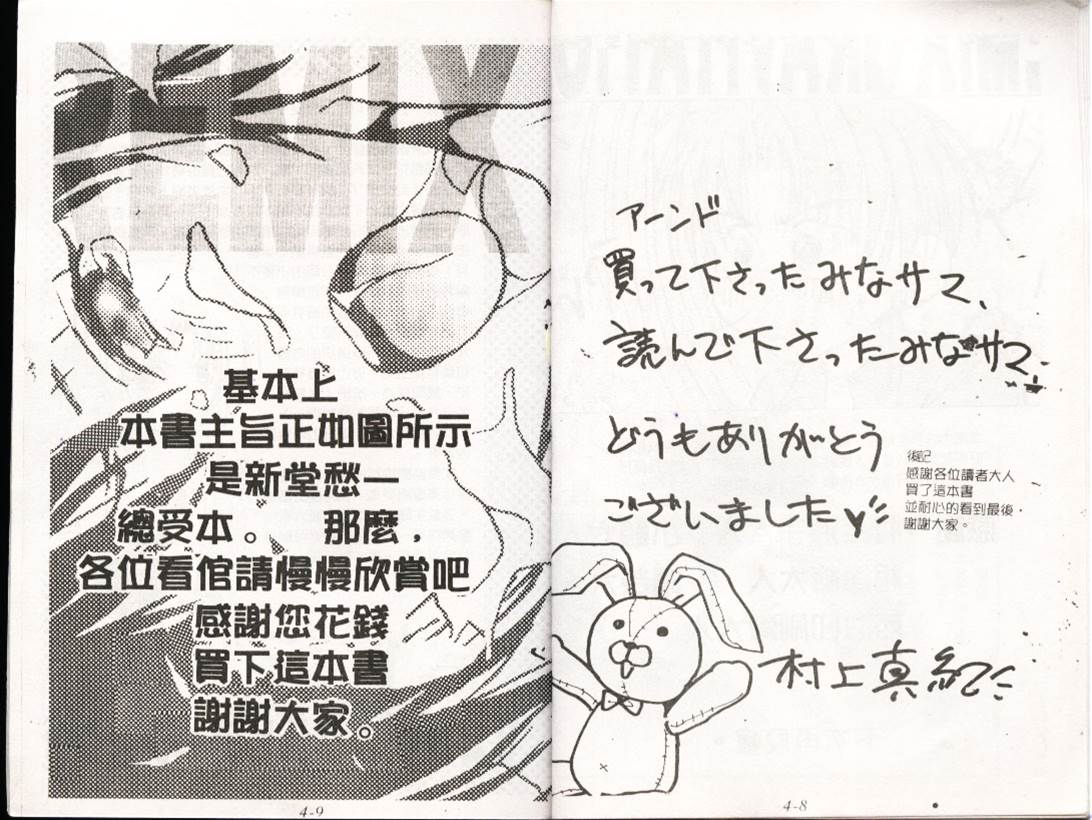 アーンド
買って下さったみなサマ、
読んで下さったみなサマ、
どうもありがとう
ございました
後記
感謝各位讀者大人
買了這本書
並耐心的看到最後，
謝謝大家。
村上真紀
4-8
REMIX
基本上
本書主旨正如圖所示
是新堂愁一
總受本。 那麼，
各位看倌請慢慢欣賞吧
感謝您花錢
買下這本書
謝謝大家。
4-9